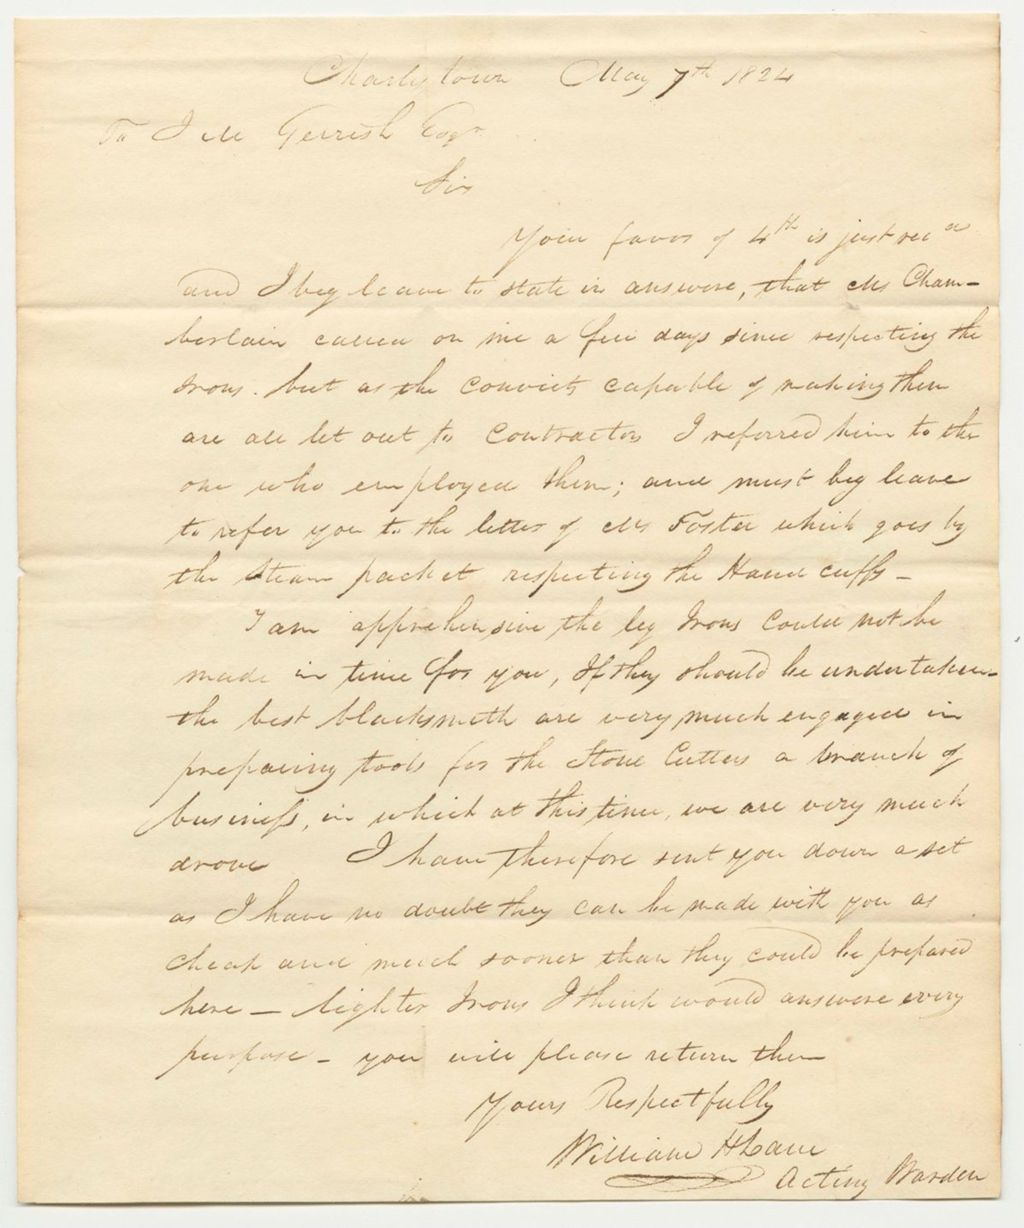 Charlestown May 7th 1824
To J W Gerrish Esqr
Sir
Your favor of 4th is just recd
and I beg leave to state in answere, that Mr Cham-
berlain called on me a few days since respecting the
Irons. but as the convicts capable of making them
are all let out to Contractors I referred him to the
one who employed them; and must beg leave
to refer you to the letter of Mr Foster which goes by
the Steam packet respecting the Hand cuffs -
I am apprehensive the leg Irons could not be
made in time for you, If they should be undertaken -
the best blacksmith are very much engaged in
preparing tools for the Stone Cutters a branch of
business, in which at this time, we are very much
drove I have therefore sent you down a set
as I have no doubt they can be made with you as
cheap and much sooner than they could be prepared
here - lighter Irons I think would answere every
purpose - you will please return them
Yours Respectfully
William H Lane
Acting Warden